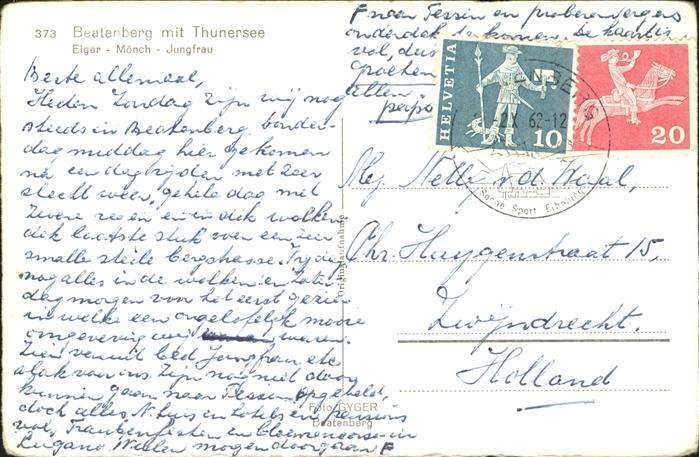 373 Beatenberg mit Thunersee
Eiger - Mönch - Jungfrau
Beste allemaal,
Heden Zondag zijn wij nog
steeds in Beatenberg. Donder-
dag middag hier gekomen
na een dag rijden met zeer
slecht weer, gehele dag met
zware regen en in dik wolken
dek laatste stuk over een zeer
smalle steile bergpasse. Vrijdag
nog alles in de wolken en Zater-
dag mogen voor het eerst gezien
in welk een ongelofelijk mooie
omgeving wij waren.
Zien vanuit bed Jungfrau etc
vlak voor ons. Zijn nog niet door
kunnen gaan naar Tessin, opgebeld,
doch alles N. huis en hotels en pensions
vol, Traubenfesten en bloemencorso in
Lugano. We mogen doorgaan F
F naar Tessin en proberen ergens
onderdek te komen. De kaart is
vol, dus
groeten
allen
HELVETIA
10
20
BEATENBERG
-2 IX 62-12
Sonne Sport Erholung
Mej. Nelly v. d. Waal,
Chr. Huygenstraat 15,
Zwijndrecht.
Holland
Originalaufnahme
Foto GYGER
Beatenberg